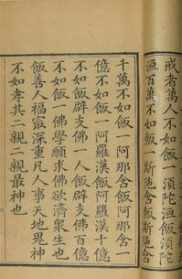 戒者萬人不如飯一湏陀洹飯湏陀
洹百萬不如飯一斯陀含飯斯陀含
千萬不如飯一阿那含飯阿那含一
億不如飯一阿羅漢飯阿羅漢十億
不如飯辟支佛一人飯辟支佛百億
不如飯一佛學願求佛欲濟衆生也
飯善人福寂深重凡人事天地鬼神
不如孝其二親二親最神也